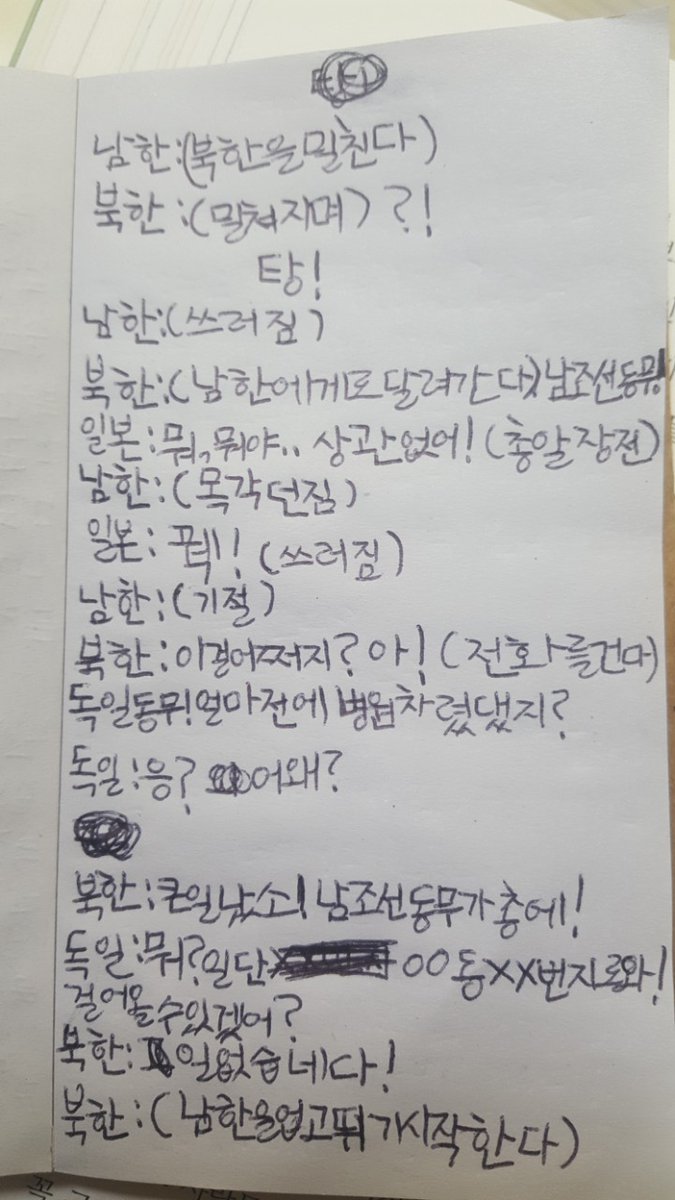 남한:(북한을밀친다)
북한:(밀쳐지며)?!
탕!
남한:(쓰러짐)
북한:(남한에게로달려간다)남조선동무!
일본:뭐,뭐야.. 상관없어!(총알장전)
남한:(목각던짐)
일본: 꿱! (쓰러짐)
남한:(기절)
북한:이걸어쩌지? 아! (전화를건다)
독일동무!얼마전에 병원차렸댔지?
독일:응? 어왜?
북한:큰일났소! 남조선동무가총에!
독일:뭐?일단 OO동XX번지로와!
걸어올수있겠어?
북한: 일없습네다!
북한:(남한을업고뛰기시작한다)